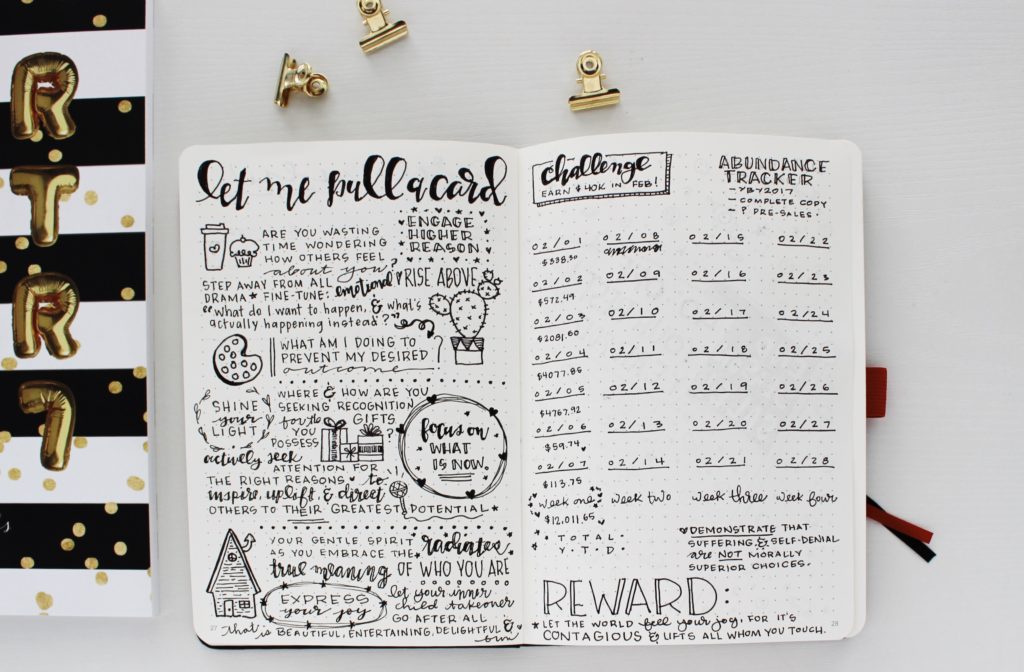 R
T
R
let me pull a card
ARE YOU WASTING
TIME WONDERING
HOW OTHERS FEEL
about you?
ENGAGE
HIGHER
REASON
STEP AWAY FROM ALL
DRAMA ★ FINE-TUNE: emotional
RISE ABOVE
"What do I want to happen, & what's
actually happening instead?"
WHAT AM I DOING TO
PREVENT MY DESIRED
outcome?
SHINE
your
LIGHT
WHERE & HOW ARE YOU
SEEKING RECOGNITION
for the GIFTS
YOU
POSSESS?
focus on
WHAT
IS NOW.
actively seek
ATTENTION FOR
THE RIGHT REASONS ♥ to
inspire, uplift, & direct
OTHERS TO THEIR GREATEST POTENTIAL ★
YOUR GENTLE SPIRIT radiates
AS YOU EMBRACE THE
true meaning OF WHO YOU ARE
EXPRESS
your joy
let your inner
child takeover
GO AFTER ALL
that is BEAUTIFUL, ENTERTAINING, DELIGHTFUL &
fun
27
challenge
EARN $40K IN FEB!
ABUNDANCE
TRACKER
- YBY2017
- COMPLETE COPY
- ? PRE-SALES.
02/01 02/08 02/15 02/22
$338.30
02/02 02/09 02/16 02/23
$572.49
02/03 02/10 02/17 02/24
$2081.60
02/04 02/11 02/18 02/25
$4077.85
02/05 02/12 02/19 02/26
$4767.92
02/06 02/13 02/20 02/27
$59.74
02/07 02/14 02/21 02/28
$113.75
week one week two week three week four
$12,011.65
TOTAL
Y.T.D.
DEMONSTRATE THAT
SUFFERING & SELF-DENIAL
are NOT MORALLY
SUPERIOR CHOICES.
REWARD:
★ LET THE WORLD feel your joy, FOR IT'S
CONTAGIOUS & LIFTS ALL WHOM YOU TOUCH.
28